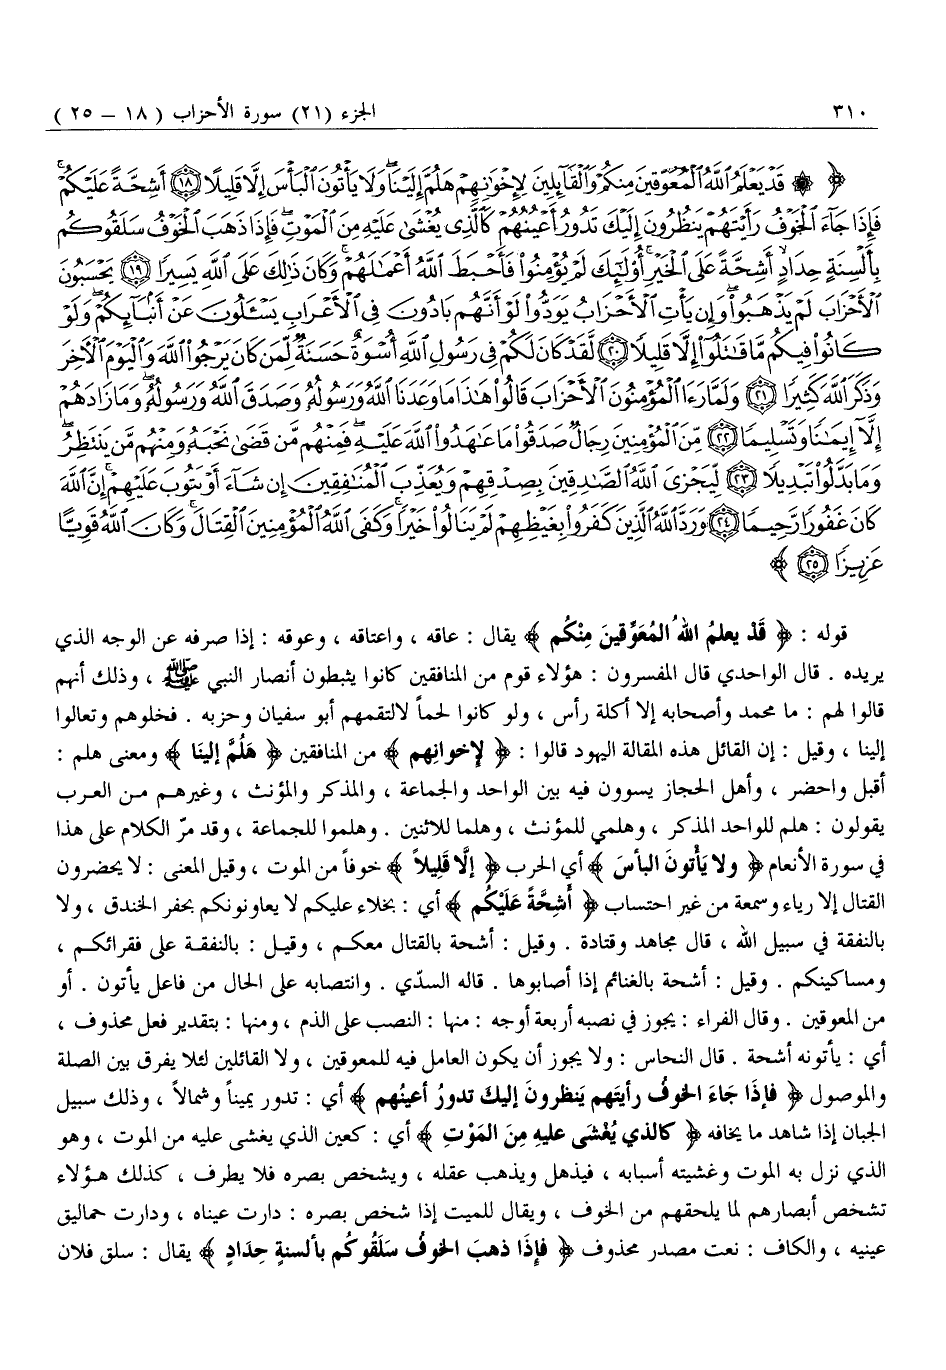 ٣١٠ الجزء (٢١) سورة الأحزاب ( ١٨ – ٢٥ )
﴿ ۞ قَدْ يَعْلَمُ ٱللَّهُ ٱلْمُعَوِّقِينَ مِنكُمْ وَٱلْقَآئِلِينَ لِإِخْوَٰنِهِمْ هَلُمَّ إِلَيْنَا ۖ وَلَا يَأْتُونَ ٱلْبَأْسَ إِلَّا قَلِيلًا ⟨١٨⟩ أَشِحَّةً عَلَيْكُمْ ۖ
فَإِذَا جَآءَ ٱلْخَوْفُ رَأَيْتَهُمْ يَنظُرُونَ إِلَيْكَ تَدُورُ أَعْيُنُهُمْ كَٱلَّذِى يُغْشَىٰ عَلَيْهِ مِنَ ٱلْمَوْتِ ۖ فَإِذَا ذَهَبَ ٱلْخَوْفُ سَلَقُوكُم
بِأَلْسِنَةٍ حِدَادٍ أَشِحَّةً عَلَى ٱلْخَيْرِ ۚ أُو۟لَٰٓئِكَ لَمْ يُؤْمِنُوا۟ فَأَحْبَطَ ٱللَّهُ أَعْمَٰلَهُمْ ۚ وَكَانَ ذَٰلِكَ عَلَى ٱللَّهِ يَسِيرًا ⟨١٩⟩ يَحْسَبُونَ
ٱلْأَحْزَابَ لَمْ يَذْهَبُوا۟ ۖ وَإِن يَأْتِ ٱلْأَحْزَابُ يَوَدُّوا۟ لَوْ أَنَّهُم بَادُونَ فِى ٱلْأَعْرَابِ يَسْـَٔلُونَ عَنْ أَنۢبَآئِكُمْ ۖ وَلَوْ
كَانُوا۟ فِيكُم مَّا قَٰتَلُوٓا۟ إِلَّا قَلِيلًا ⟨٢٠⟩ لَّقَدْ كَانَ لَكُمْ فِى رَسُولِ ٱللَّهِ أُسْوَةٌ حَسَنَةٌ لِّمَن كَانَ يَرْجُوا۟ ٱللَّهَ وَٱلْيَوْمَ ٱلْءَاخِرَ
وَذَكَرَ ٱللَّهَ كَثِيرًا ⟨٢١⟩ وَلَمَّا رَءَا ٱلْمُؤْمِنُونَ ٱلْأَحْزَابَ قَالُوا۟ هَٰذَا مَا وَعَدَنَا ٱللَّهُ وَرَسُولُهُۥ وَصَدَقَ ٱللَّهُ وَرَسُولُهُۥ ۚ وَمَا زَادَهُمْ
إِلَّآ إِيمَٰنًا وَتَسْلِيمًا ⟨٢٢⟩ مِّنَ ٱلْمُؤْمِنِينَ رِجَالٌ صَدَقُوا۟ مَا عَٰهَدُوا۟ ٱللَّهَ عَلَيْهِ ۖ فَمِنْهُم مَّن قَضَىٰ نَحْبَهُۥ وَمِنْهُم مَّن يَنتَظِرُ ۖ
وَمَا بَدَّلُوا۟ تَبْدِيلًا ⟨٢٣⟩ لِّيَجْزِىَ ٱللَّهُ ٱلصَّٰدِقِينَ بِصِدْقِهِمْ وَيُعَذِّبَ ٱلْمُنَٰفِقِينَ إِن شَآءَ أَوْ يَتُوبَ عَلَيْهِمْ ۚ إِنَّ ٱللَّهَ
كَانَ غَفُورًا رَّحِيمًا ⟨٢٤⟩ وَرَدَّ ٱللَّهُ ٱلَّذِينَ كَفَرُوا۟ بِغَيْظِهِمْ لَمْ يَنَالُوا۟ خَيْرًا ۚ وَكَفَى ٱللَّهُ ٱلْمُؤْمِنِينَ ٱلْقِتَالَ ۚ وَكَانَ ٱللَّهُ قَوِيًّا
عَزِيزًا ⟨٢٥⟩ ﴾
قوله : ﴿ قَدْ يعلمُ اللهُ المُعَوِّقينَ مِنْكُم ﴾ يقال : عاقه ، واعتاقه ، وعوقه : إذا صرفه عن الوجه الذي
يريده . قال الواحدي قال المفسرون : هؤلاء قوم من المنافقين كانوا يثبطون أنصار النبي ﷺ ، وذلك أنهم
قالوا لهم : ما محمد وأصحابه إلا أكلة رأس ، ولو كانوا لحماً لالتقمهم أبو سفيان وحزبه . فخلوهم وتعالوا
إلينا ، وقيل : إن القائل هذه المقالة اليهود قالوا : ﴿ لإخوانِهم ﴾ من المنافقين ﴿ هَلُمَّ إلينَا ﴾ ومعنى هلم :
أقبل واحضر ، وأهل الحجاز يسوون فيه بين الواحد والجماعة ، والمذكر والمؤنث ، وغيرهم من العرب
يقولون : هلم للواحد المذكر ، وهلمي للمؤنث ، وهلما للاثنين . وهلموا للجماعة ، وقد مرّ الكلام على هذا
في سورة الأنعام ﴿ ولا يَأْتونَ البأسَ ﴾ أي الحرب ﴿ إلَّا قَليلاً ﴾ خوفاً من الموت ، وقيل المعنى : لا يحضرون
القتال إلا رياء وسمعة من غير احتساب ﴿ أَشحَّةً عَلَيْكُم ﴾ أي : بخلاء عليكم لا يعاونونكم بحفر الخندق ، ولا
بالنفقة في سبيل الله ، قال مجاهد وقتادة . وقيل : أشحة بالقتال معكم ، وقيل : بالنفقة على فقرائكم ،
ومساكينكم . وقيل : أشحة بالغنائم إذا أصابوها . قاله السدّي . وانتصابه على الحال من فاعل يأتون . أو
من المعوقين . وقال الفراء : يجوز في نصبه أربعة أوجه : منها : النصب على الذم ، ومنها : بتقدير فعل محذوف ،
أي : يأتونه أشحة . قال النحاس : ولا يجوز أن يكون العامل فيه للمعوقين ، ولا القائلين لئلا يفرق بين الصلة
والموصول ﴿ فإذَا جَاءَ الخوفُ رأيتَهم يَنظرونَ إليكَ تدورُ أعينُهم ﴾ أي : تدور يميناً وشمالاً ، وذلك سبيل
الجبان إذا شاهد ما يخافه ﴿ كالذي يُغْشَى عليهِ مِنَ المَوْتِ ﴾ أي : كعين الذي يغشى عليه من الموت ، وهو
الذي نزل به الموت وغشيته أسبابه ، فيذهل ويذهب عقله ، ويشخص بصره فلا يطرف ، كذلك هؤلاء
تشخص أبصارهم لما يلحقهم من الخوف ، ويقال للميت إذا شخص بصره : دارت عيناه ، ودارت حماليق
عينيه ، والكاف : نعت مصدر محذوف ﴿ فإِذَا ذهبَ الخوفُ سَلَقُوكُم بألسنةٍ حِدَادٍ ﴾ يقال : سلق فلان